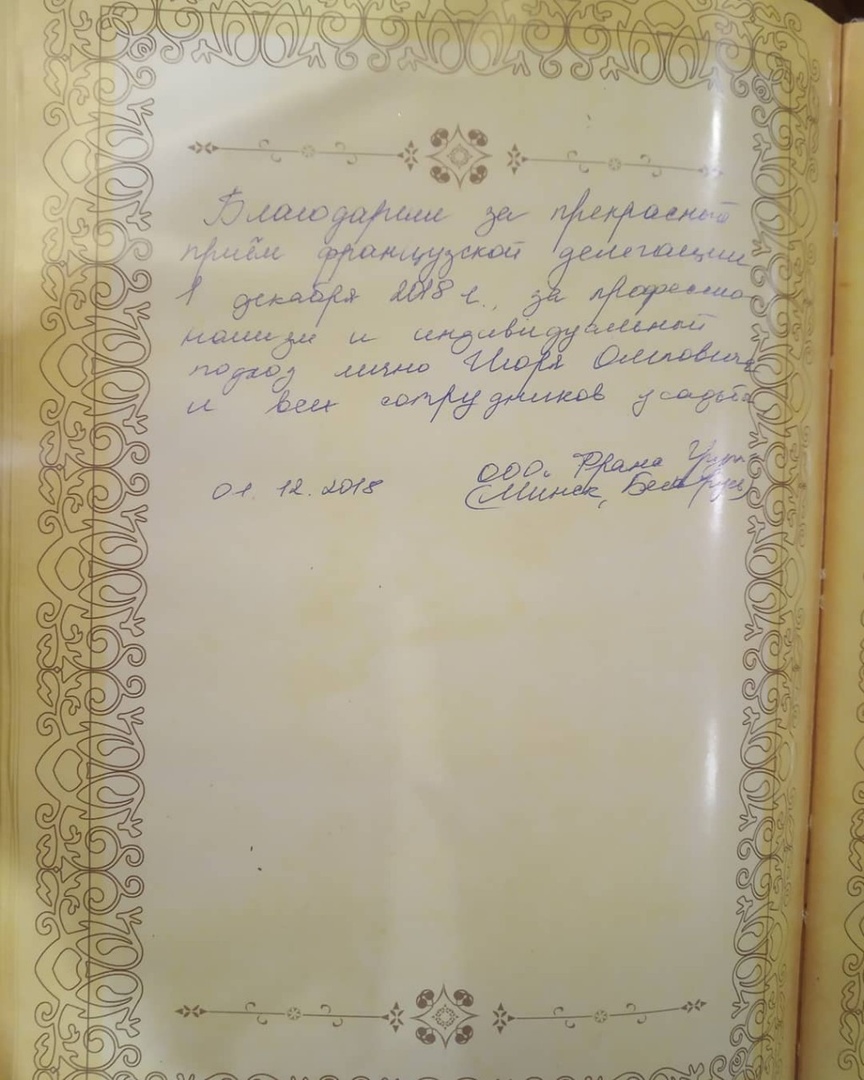 Благодарим за прекрасный
приём французской делегации
1 декабря 2018 г., за профессио-
нализм и индивидуальный
подход лично Игоря Олеговича
и всех сотрудников усадьбы
ООО "Франа
01.12.2018 Минск, Беларусь